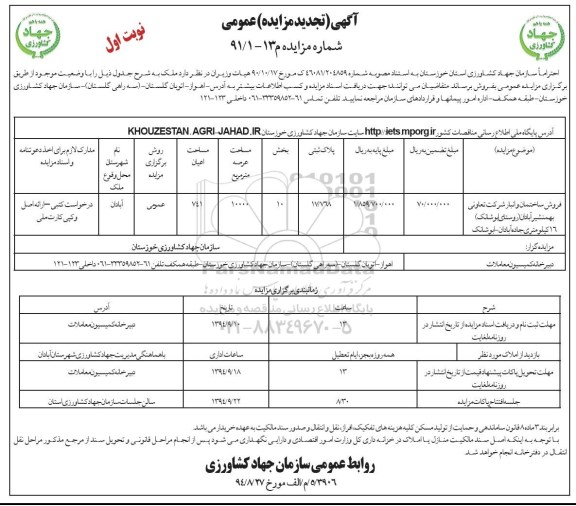 آگهی (تجدید مزایده) عمومی
نوبت اول
شماره مزایده م ۱۳-۹۱/۱
جهاد کشاورزی
احتراماً سازمان جهاد کشاورزی استان خوزستان به استناد مصوبه شماره ۴۶۰۸۱/۲۰۴۸۵۹ ک مورخ ۹۰/۱۰/۱۷ هیات وزیران در نظر دارد ملک به شرح جدول ذیل را با وضعیت موجود از طریق
برگزاری مزایده عمومی به فروش برساند متقاضیان می توانند جهت دریافت اسناد مزایده و کسب اطلاعات بیشتر به آدرس-اهواز-اتوبان گلستان-(سه راهی گلستان)-سازمان جهاد کشاورزی
خوزستان-طبقه همکف-اداره امور پیمانها و قراردادهای سازمان مراجعه نمایند. تلفن تماس ۳۳۳۵۹۸۵۲-۰۶۱ داخلی ۱۲۳-۱۲۱
آدرس پایگاه ملی اطلاع رسانی مناقصات کشور http://iets.mporg.ir سایت سازمان جهاد کشاورزی خوزستان KHOUZESTAN.AGRI-JAHAD.IR
(موضوع مزایده) مبلغ تضمین به ریال مبلغ پایه به ریال پلاک ثبتی بخش مساحت عرصه مترمربع مساحت اعیان روش برگزاری مزایده نام شهرستان محل وقوع ملک مدارک لازم برای اخذ دعوتنامه و اسناد مزایده
فروش ساختمان و انبار شرکت تعاونی بهمنشیر آبادان (روستای ابوشانک) ۱۶ کیلومتری جاده آبادان-ابوشانک ۷۰/۰۰۰/۰۰۰ ۱/۸۵۹/۷۰۰/۰۰۰ ۱۷/۷۶۸ ۱۰ ۱۰۰۰۰ ۷۴۱ عمومی آبادان درخواست کتبی-ارائه اصل و کپی کارت ملی
مزایده گزار: سازمان جهاد کشاورزی خوزستان
دبیرخانه کمیسیون معاملات اهواز-اتوبان گلستان-(سه راهی گلستان)-سازمان جهاد کشاورزی خوزستان-طبقه همکف تلفن ۳۳۳۵۹۸۵۲-۰۶۱ داخلی ۱۲۳-۱۲۱
زمانبندی برگزاری مزایده
شرح ساعت تاریخ آدرس
مهلت ثبت نام و دریافت اسناد مزایده از تاریخ انتشار در روزنامه لغایت ۱۳ ۱۳۹۴/۹/۱۰ دبیرخانه کمیسیون معاملات
بازدید از املاک مورد نظر همه روزه بجز ایام تعطیل ساعات اداری با هماهنگی مدیریت جهاد کشاورزی شهرستان آبادان
مهلت تحویل پاکات پیشنهاد قیمت از تاریخ انتشار در روزنامه لغایت ۱۳ ۱۳۹۴/۹/۱۸ دبیرخانه کمیسیون معاملات
جلسه افتتاح پاکات مزایده ۸/۳۰ ۱۳۹۴/۹/۲۲ سالن جلسات سازمان جهاد کشاورزی استان
برابر بند ۳ ماده ۸ قانون ساماندهی و حمایت از تولید مسکن کلیه هزینه های تفکیک، افراز، نقل و انتقال و صدور سند مالکیت به عهده خریدار می باشد.
با توجه به اینکه اصل سند مالکیت منازل یا املاک در خزانه داری کل وزارت امور اقتصادی و دارایی نگهداری می شود پس از انجام مراحل قانونی و تحویل سند از مرجع مذکور مراحل نقل
انتقال در دفترخانه انجام خواهد شد.
روابط عمومی سازمان جهاد کشاورزی
۵/۳۹۰۶/م/الف مورخ ۹۴/۸/۲۷
ParsNamadData
۰۲۱-۸۸۳۴۹۶۷۰-۵